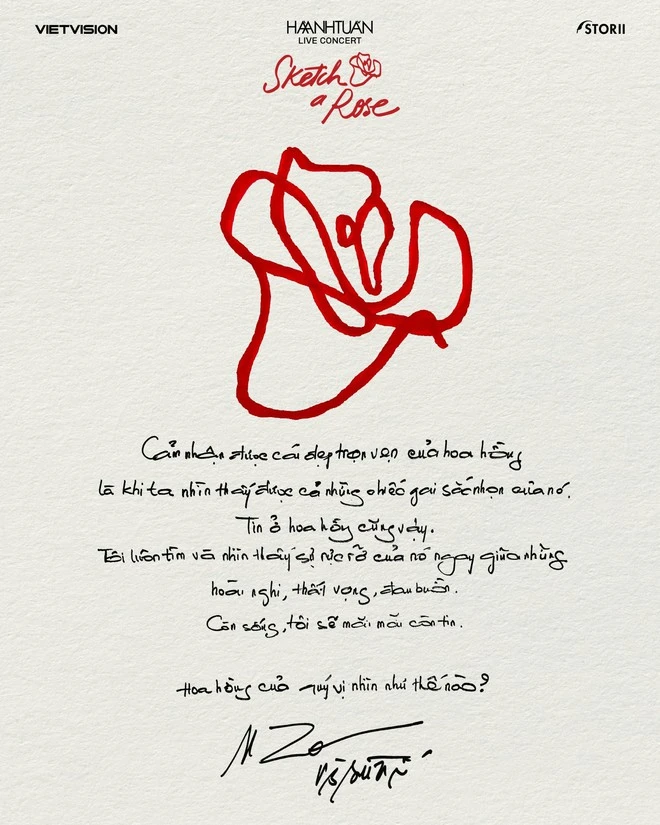 VIETVISION
HÀANHTUẤN
LIVE CONCERT
STORII
Sketch
a Rose
Cảm nhận được cái đẹp trọn vẹn của hoa hồng
là khi ta nhìn thấy được cả những chiếc gai sắc nhọn của nó.
Tin ở hoa hồng cũng vậy.
Tôi luôn tìm và nhìn thấy sự rực rỡ của nó ngay giữa những
hoài nghi, thất vọng, đau buồn.
Còn sống, tôi sẽ mãi mãi còn tin.
Hoa hồng của quý vị nhìn như thế nào?